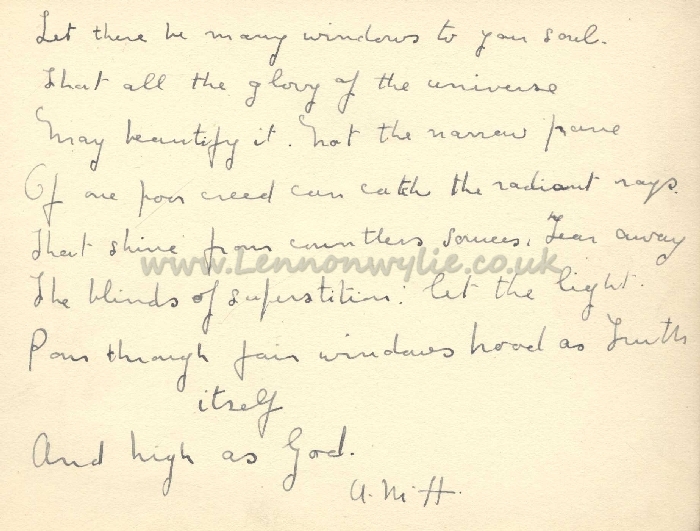 Let there be many windows to your soul.
That all the glory of the universe
May beautify it. Not the narrow pane
Of one poor creed can catch the radiant rays.
That shine from countless sources. Tear away
www.Lennonwylie.co.uk
The blinds of superstition: let the light.
Pour through fair windows broad as Truth
itself
And high as God.
A. M. H.